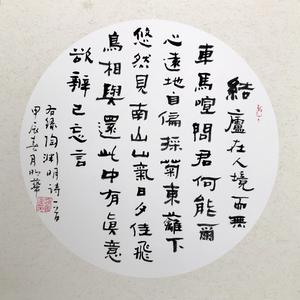 結廬在人境而無
車馬喧問君何能爾
心遠地自偏採菊東籬下
悠然見南山山氣日夕佳飛
鳥相與還此中有眞意
欲辨已忘言
右錄陶淵明詩一首
甲辰春月華